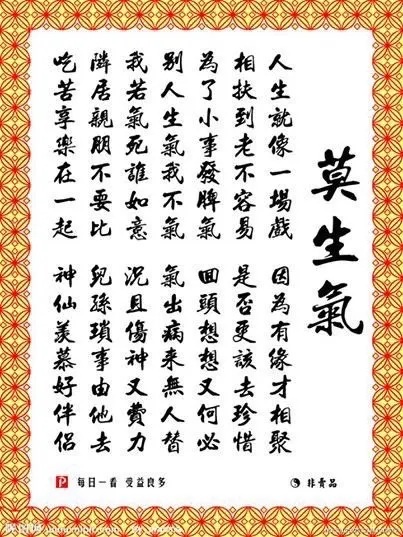 莫生氣
人生就像一場戲
因為有緣才相聚
相扶到老不容易
是否更該去珍惜
為了小事發脾氣
回頭想想又何必
別人生氣我不氣
氣出病來無人替
我若氣死誰如意
況且傷神又費力
隣居親朋不要比
兒孫瑣事由他去
吃苦享樂在一起
神仙羨慕好伴侶
每日一看 受益良多
非賣品